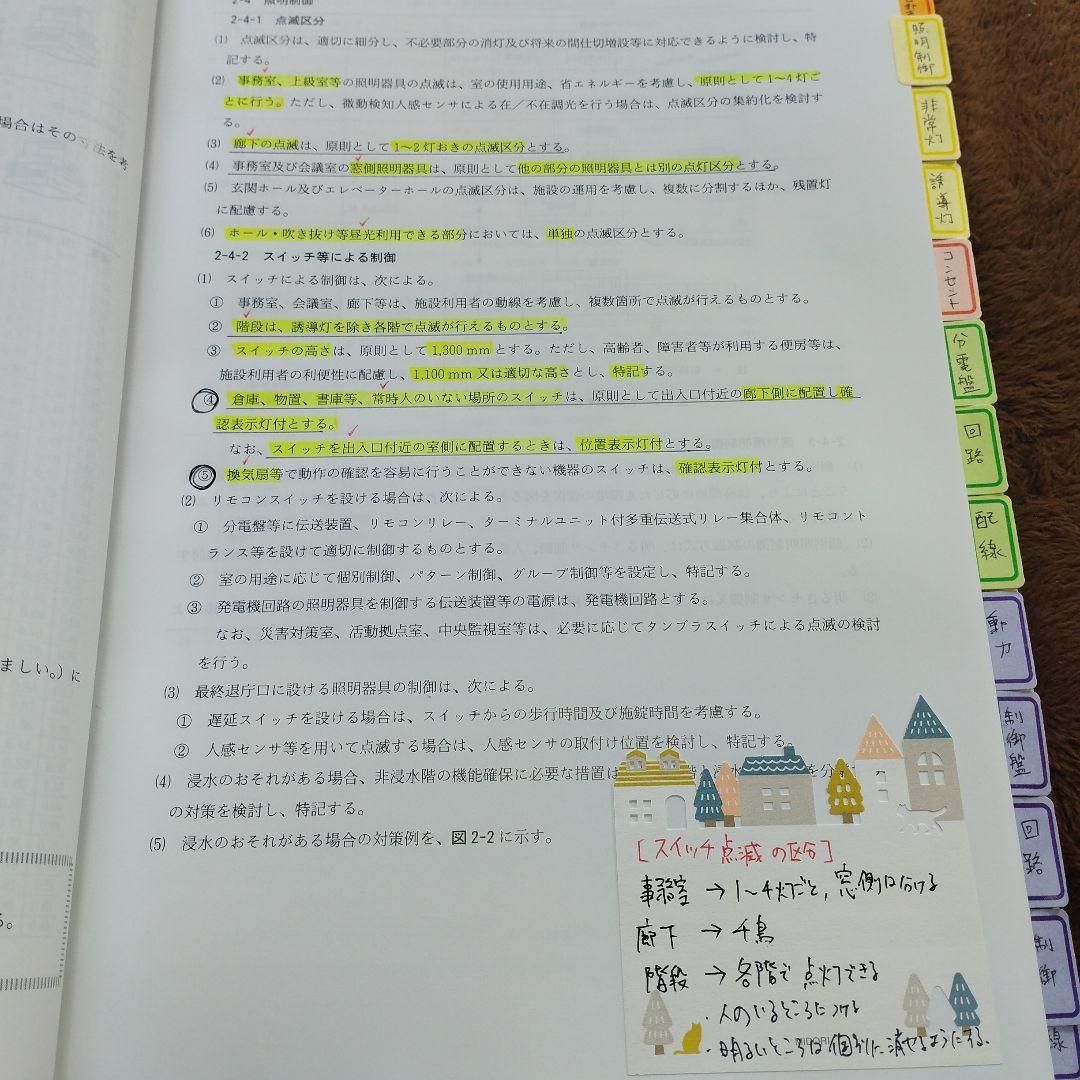 2-4 照明制御
2-4-1 点滅区分
(1) 点滅区分は、適切に細分し、不必要部分の消灯及び将来の間仕切増設等に対応できるように検討し、特
記する。
(2) 事務室、上級室等の照明器具の点滅は、室の使用用途、省エネルギーを考慮し、原則として1~4灯ご
とに行う。ただし、微動検知人感センサによる在/不在調光を行う場合は、点滅区分の集約化を検討す
る。
(3) 廊下の点滅は、原則として1~2灯おきの点滅区分とする。
(4) 事務室及び会議室の窓側照明器具は、原則として他の部分の照明器具とは別の点灯区分とする。
(5) 玄関ホール及びエレベーターホールの点滅区分は、施設の運用を考慮し、複数に分割するほか、残置灯
に配慮する。
(6) ホール・吹き抜け等昼光利用できる部分においては、単独の点滅区分とする。
2-4-2 スイッチ等による制御
(1) スイッチによる制御は、次による。
① 事務室、会議室、廊下等は、施設利用者の動線を考慮し、複数箇所で点滅が行えるものとする。
② 階段は、誘導灯を除き各階で点滅が行えるものとする。
③ スイッチの高さは、原則として1,300mmとする。ただし、高齢者、障害者等が利用する便房等は、
施設利用者の利便性に配慮し、1,100mm又は適切な高さとし、特記する。
④ 倉庫、物置、書庫等、常時人のいない場所のスイッチは、原則として出入口付近の廊下側に配置し確
認表示灯付とする。
なお、スイッチを出入口付近の室側に配置するときは、位置表示灯付とする。
⑤ 換気扇等で動作の確認を容易に行うことができない機器のスイッチは、確認表示灯付とする。
(2) リモコンスイッチを設ける場合は、次による。
① 分電盤等に伝送装置、リモコンリレー、ターミナルユニット付多重伝送式リレー集合体、リモコント
ランス等を設けて適切に制御するものとする。
② 室の用途に応じて個別制御、パターン制御、グループ制御等を設定し、特記する。
③ 発電機回路の照明器具を制御する伝送装置等の電源は、発電機回路とする。
なお、災害対策室、活動拠点室、中央監視室等は、必要に応じてタンブラスイッチによる点滅の検討
を行う。
(3) 最終退庁口に設ける照明器具の制御は、次による。
① 遅延スイッチを設ける場合は、スイッチからの歩行時間及び施錠時間を考慮する。
② 人感センサ等を用いて点滅する場合は、人感センサの取付け位置を検討し、特記する。
(4) 浸水のおそれがある場合、非浸水階の機能確保に必要な措置は
の対策を検討し、特記する。
(5) 浸水のおそれがある場合の対策例を、図2-2に示す。
[スイッチ点滅の区分]
事務室 → 1~4灯ごと, 窓側は分ける
廊下 → 千鳥
階段 → 各階で点灯できる
・人のいるところにつける
・明るいところは個別に消せるようにする.
MIDORI
場合はその寸法を考
ましい。)に
る。
照明制御
非常灯
誘導灯
コンセント
分電盤
回路
配線
動力
制御盤
回路
制御
線